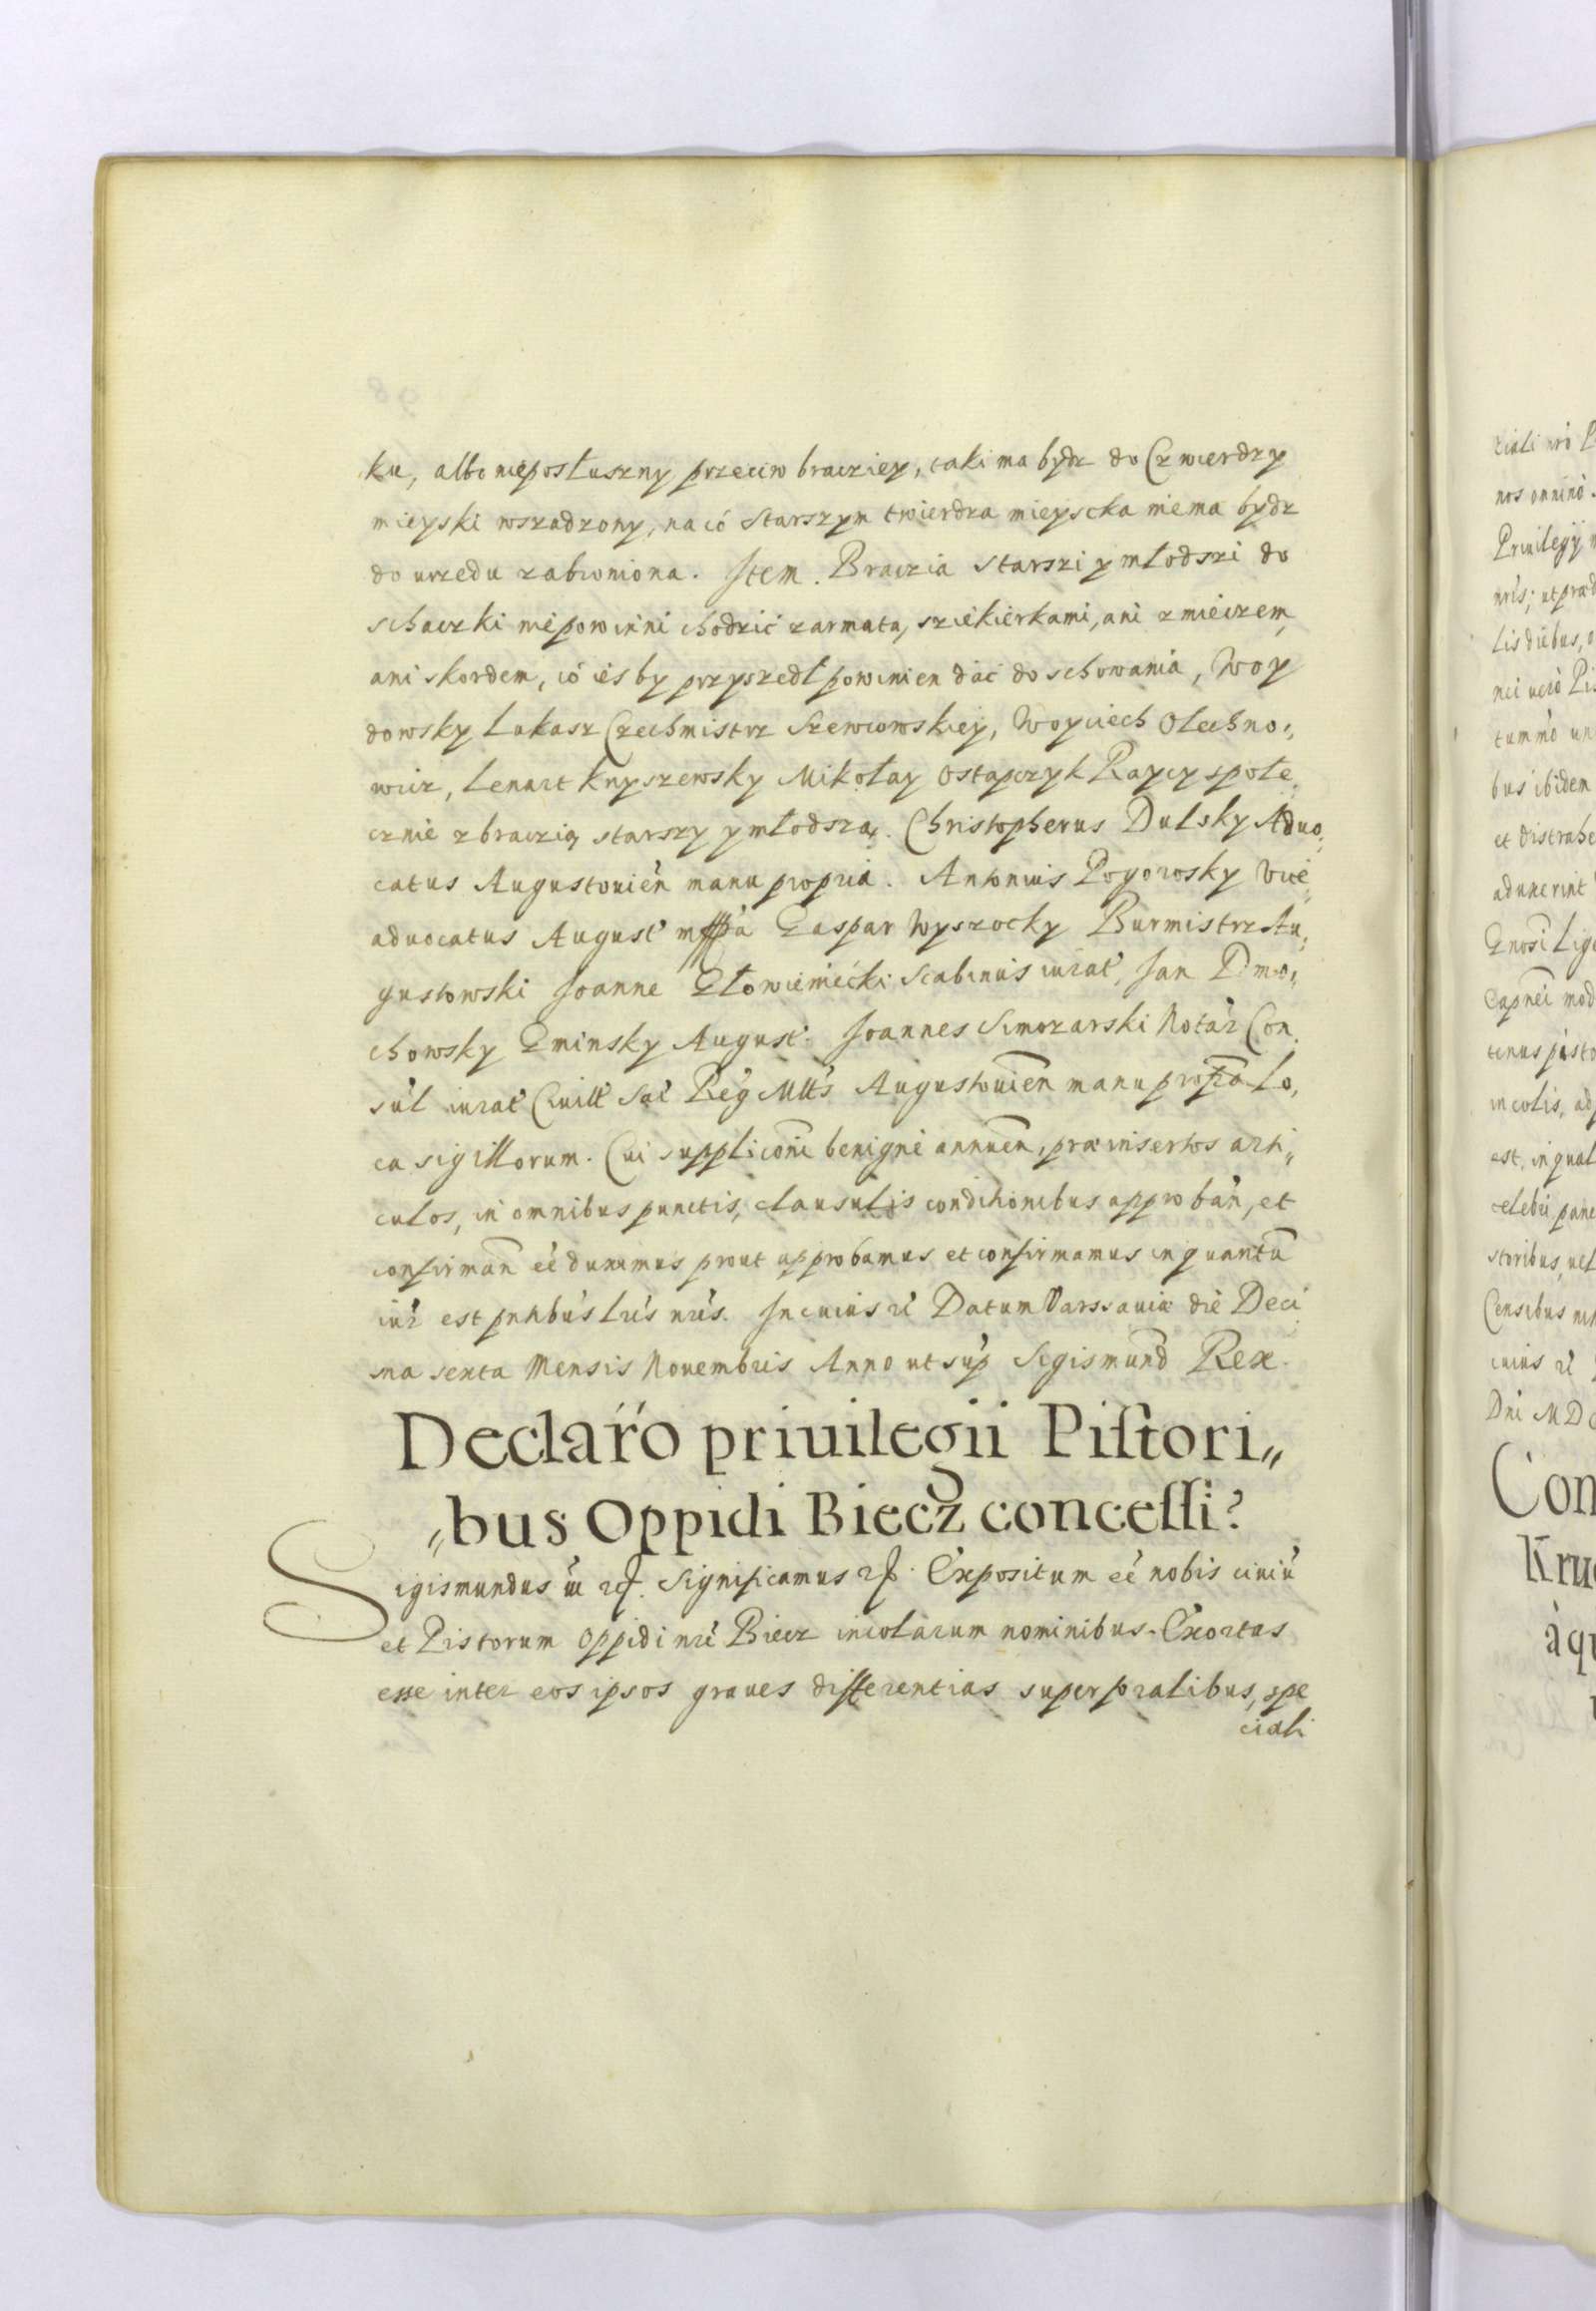 ku, albo nieposłuszny przeciw bracziey, taki ma bydz do Czwierdzy
mieyski wszadzony, na có Starszym twierdza mieyscka niema bydz
do urzedu zabroniona. Item. Braczia starszi y młodszi do
schaczki niepowinni chodzić zarmatą, sziekierkami, ani zmieczem,
ani skordem, có iesby przyszedł powinien dác do schowania, Woy
dowsky Lukasz Czechmistrz Szewcowskiey, Woyciech Olechno„
wicz, Lenart Knyszewsky Mikołay Ostapczyk Raycy społe„
cznie z braczią starszy y młodszą. Christopherus Dulsky Aduo„
catus Augustouień manu propria. Antonius Pogorosky Vice„
aduocatus August' mppa Gaspar Wyszocky Burmistrz Au„
gustowski Joanne Głowieniecki Scabinus iurat', Jan Dmo„
chowsky Gminsky August'. Joannes Simozarski Notar' Con„
sul iurat' Ciuitt' Sac' Reg' Mtt's Augustouien manu propra Lo„
ca sigillorum. Cui suppliconi benigne annuen, præinsertos arti„
culos, in omnibus punctis, clausulis conditionibus approban, et
confirman eé duximus prout approbamus et confirmamus in quantu
iur' est pntibus lris nris. In cuius rei Datum Varssauiæ die Deci„
ma sexta Mensis Nouembris Anno ut sup' Sigismund Rex.
Declar'o priuilegii Piſtori„
„bus Oppidi Biecz conceſſi?
Sigismundus iii rf. Significamus rf. Expositum eé nobis ciuiu
et Pistorum Oppidi nri Biecz incolarum nominibus. Exortas
esse inter eos ipsos graues differentias super pralibus, spe
ciali
98
ciali nrò P
nos omninò
Priuilegÿ
nris; ut præd
lis diebus,
nei uerò Pis
tummò un
bus ibidem
et distrahe
aduxerint
Gnosi Lig
Capnei mod
tenus pisto
incolis, adp
est, in qual
celebri pane
storibus, uel
Censibus
cuius ri
Dni MDC
Con
Kru
à qu